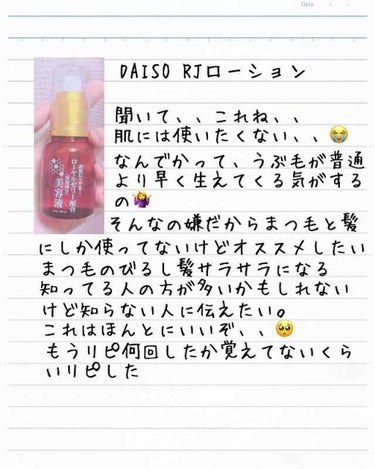 DAISO RJローション
ローヤルゼリー配合
美容液
聞いて、、これね、、
肌には使いたくない、、😭
なんでかって、うぶ毛が普通
より早く生えてくる気がする
の🤷‍♀️
そんなの嫌だからまつもと髪
にしか使ってないけどオススメしたい
まつものびるし髪サラサラになる
知ってる人の方が多いかもしれない
けど知らない人に伝えたい。
これはほんとにいいぞ、、🥺
もうリピ何回したか覚えてないくら
いリピした